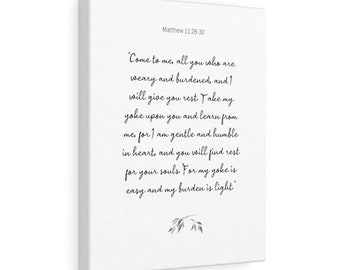 Matthew 11:28-30
"Come to me, all you who are
weary and burdened, and I
will give you rest. Take my
yoke upon you and learn from
me, for I am gentle and humble
in heart, and you will find rest
for your souls. For my yoke is
easy and my burden is light."